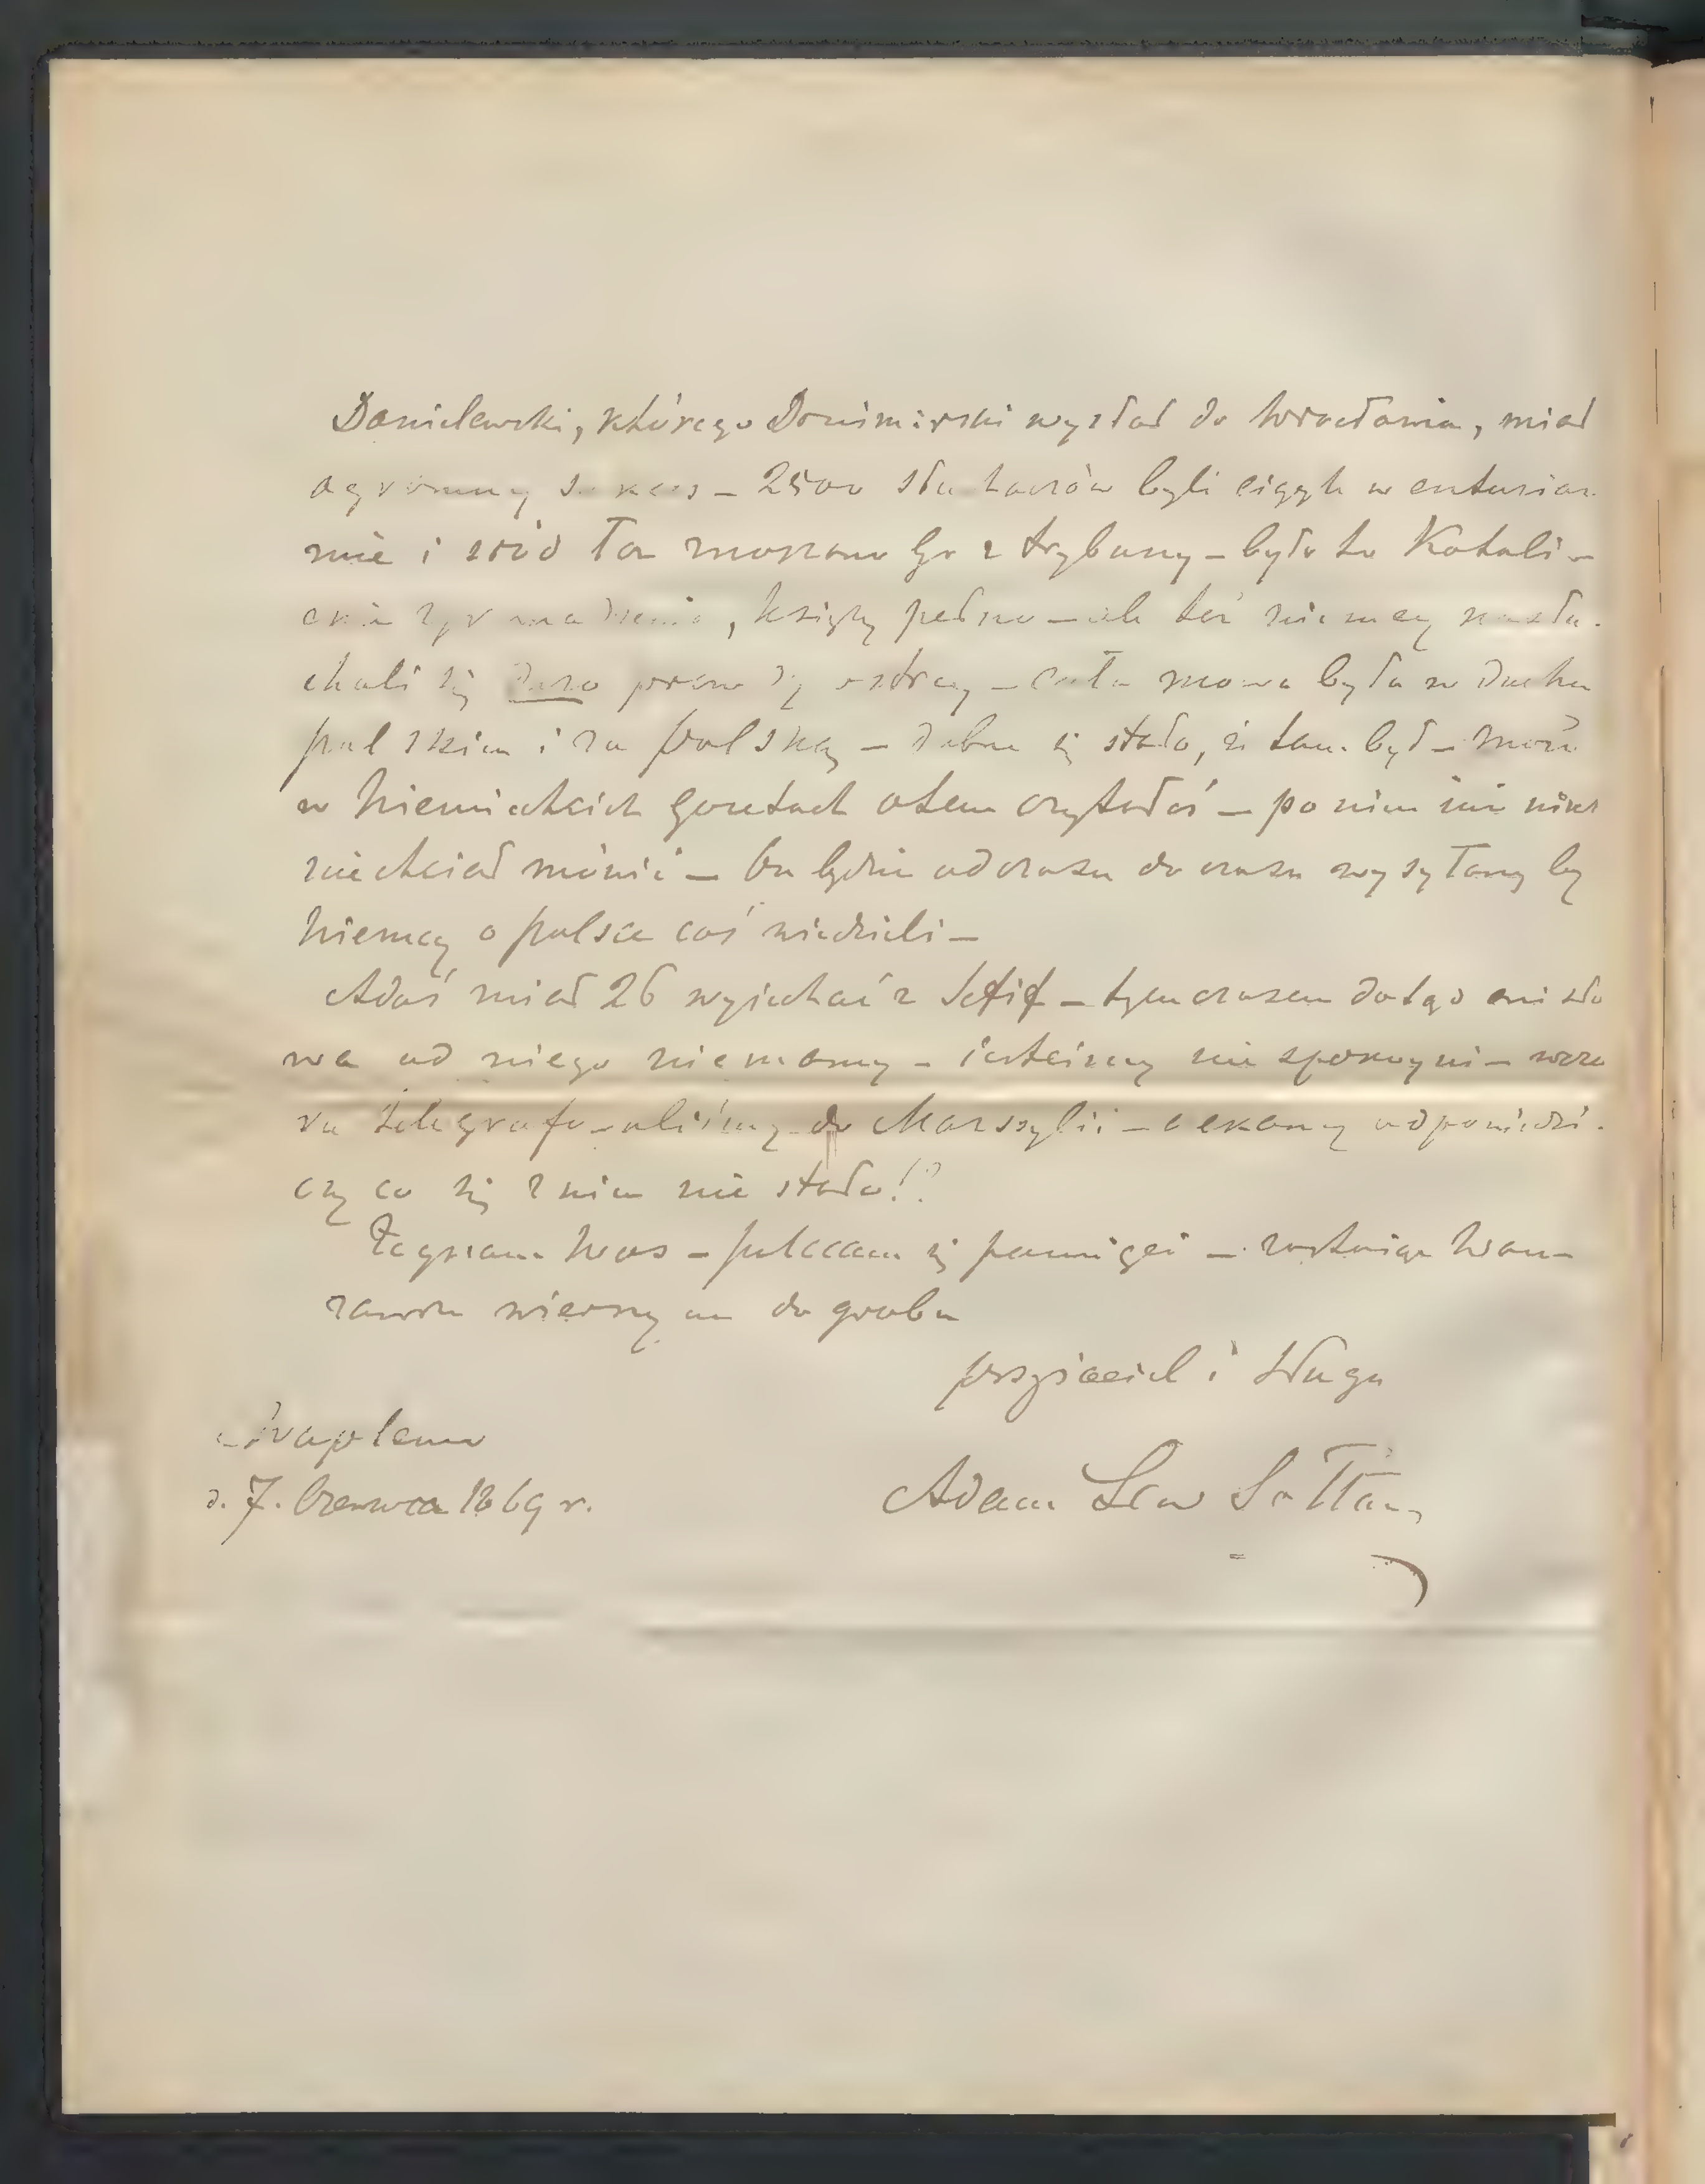 Danielewski, którego Donimirski wysłał do Wrocławia, miał
ogromny sukces – 2500 słuchaczów byli ciągle w entuzias-
mie i wśród łez znoszono Go z trybuny – było to Katoli-
ckie zgromadzenie, księży pełno – ale też niemcy nasłu-
chali się dużo prawdy ostrey – cała mowa była w duchu
polskim i za Polską – dobrze się stało, że tam był – może
w Niemieckich gazetach otem czytałeś – po nim nie nikt
niechciał mówić – bo będzie odczasu do czasu wysyłany by
Niemcy o polsce coś wiedzieli –
Adaś miał 26 wyjechać z Setif – tymczasem dotąd ani sło
wa od niego niemamy – iesteśmy nie spokoyni – wczo
ra telegrafowaliśmy do Marsylii – czekamy odpowiedzi.
czy co się z nim nie stało!?
Żegnam Was – polecam się pamięci – zostaię Wam
zawsze wiernym do grobu
przyjaciel i sługa
d. 7. Czerwca 1869 r.
Adam Lew Sołtan